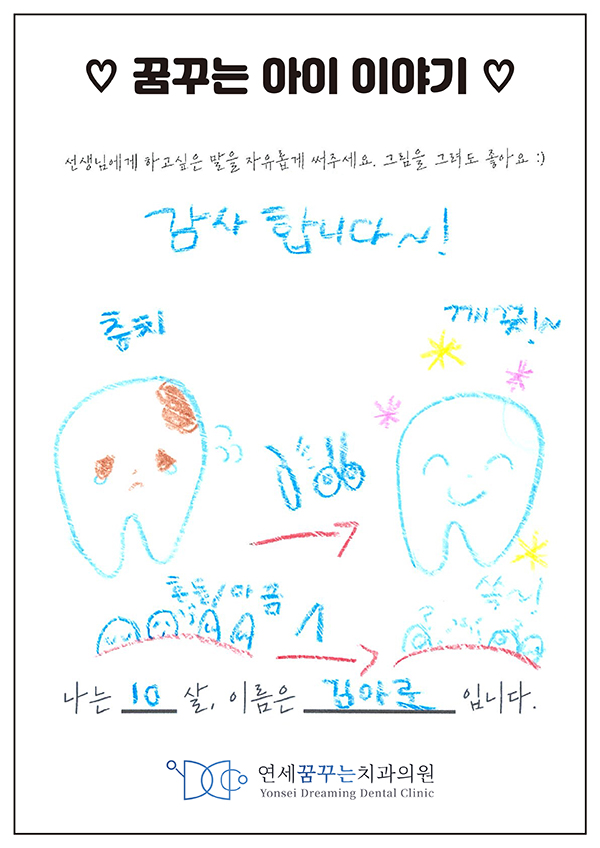 ♡ 꿈꾸는 아이 이야기 ♡
선생님에게 하고싶은 말을 자유롭게 써주세요. 그림을 그려도 좋아요 :)
감사 합니다~!
충치
깨끗!~
흔들/아픔
쏙~!
나는 10 살, 이름은 김아루 입니다.
연세꿈꾸는치과의원
Yonsei Dreaming Dental Clinic